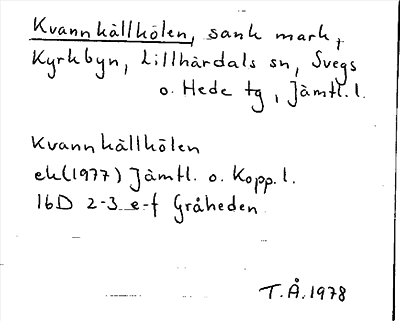 Kvannkällkölen, sank mark,
Kyrkbyn, Lillhärdals sn, Svegs
o. Hede tg, Jämtl. l.
Kvannkällkölen
ek (1977) Jämtl. o. Kopp. l.
16D 2-3 e-f Gråheden
T.Å. 1978